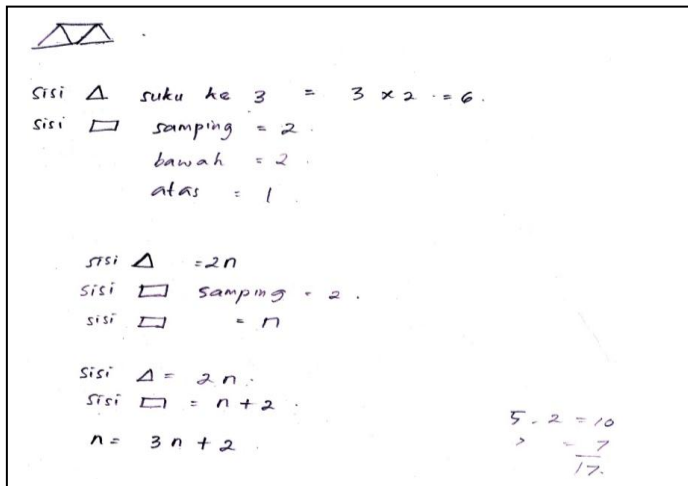 sisi △ suku ke 3 = 3 x 2 = 6.
sisi ▭ samping = 2.
bawah = 2.
atas = 1
sisi △ = 2n
sisi ▭ samping = 2.
sisi ▭ = n
sisi △ = 2n.
sisi ▭ = n + 2.
n = 3n + 2.
5 . 2 = 10
7
17.